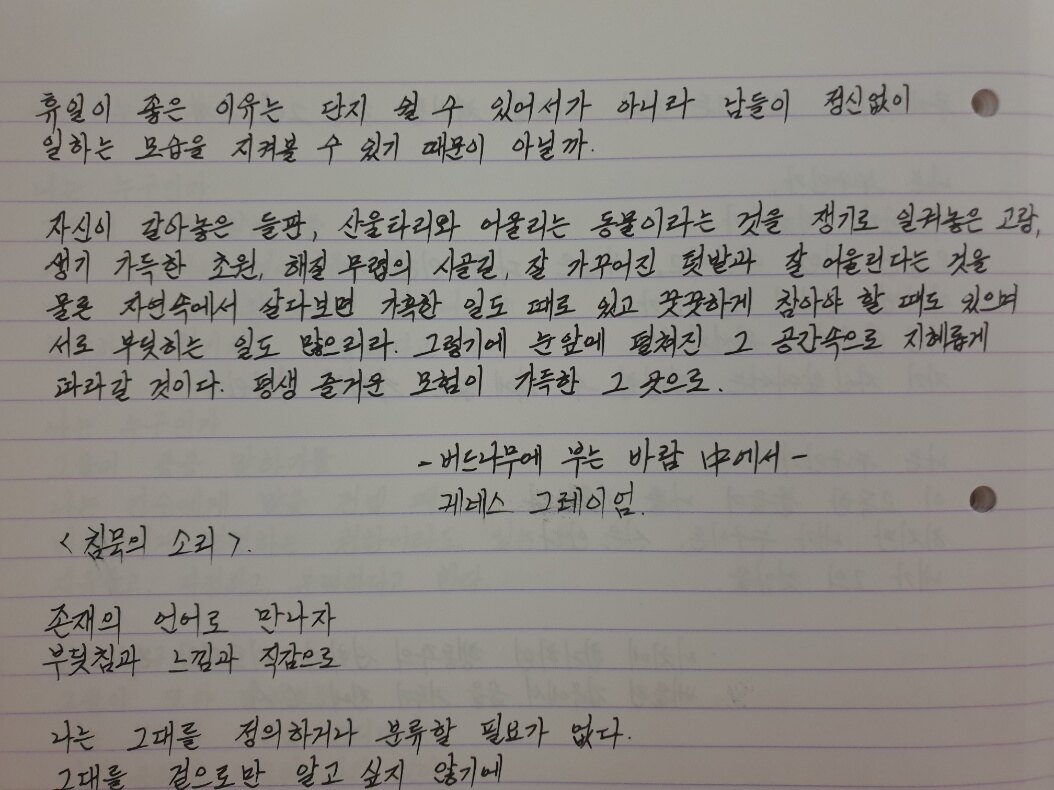 휴일이 좋은 이유는 단지 쉴 수 있어서가 아니라 남들이 정신없이
일하는 모습을 지켜볼 수 있기 때문이 아닐까.
자신이 갈아놓은 들판, 산울타리와 어울리는 동물이라는 것을 쟁기로 일궈놓은 고랑,
생기 가득한 초원, 해질 무렵의 시골길, 잘 가꾸어진 텃밭과 잘 어울린다는 것을
물론 자연속에서 살다보면 가혹한 일도 때로 있고 꿋꿋하게 참아야 할 때도 있으며
서로 부딪히는 일도 많으리라. 그렇기에 눈앞에 펼쳐진 그 공간속으로 지혜롭게
따라갈 것이다. 평생 즐거운 모험이 가득한 그 곳으로.
-버드나무에 부는 바람 中에서-
케네스 그레이엄.
<침묵의 소리>.
존재의 언어로 만나자
부딪침과 느낌과 직감으로
나는 그대를 정의하거나 분류할 필요가 없다.
그대를 겉으로만 알고 싶지 않기에